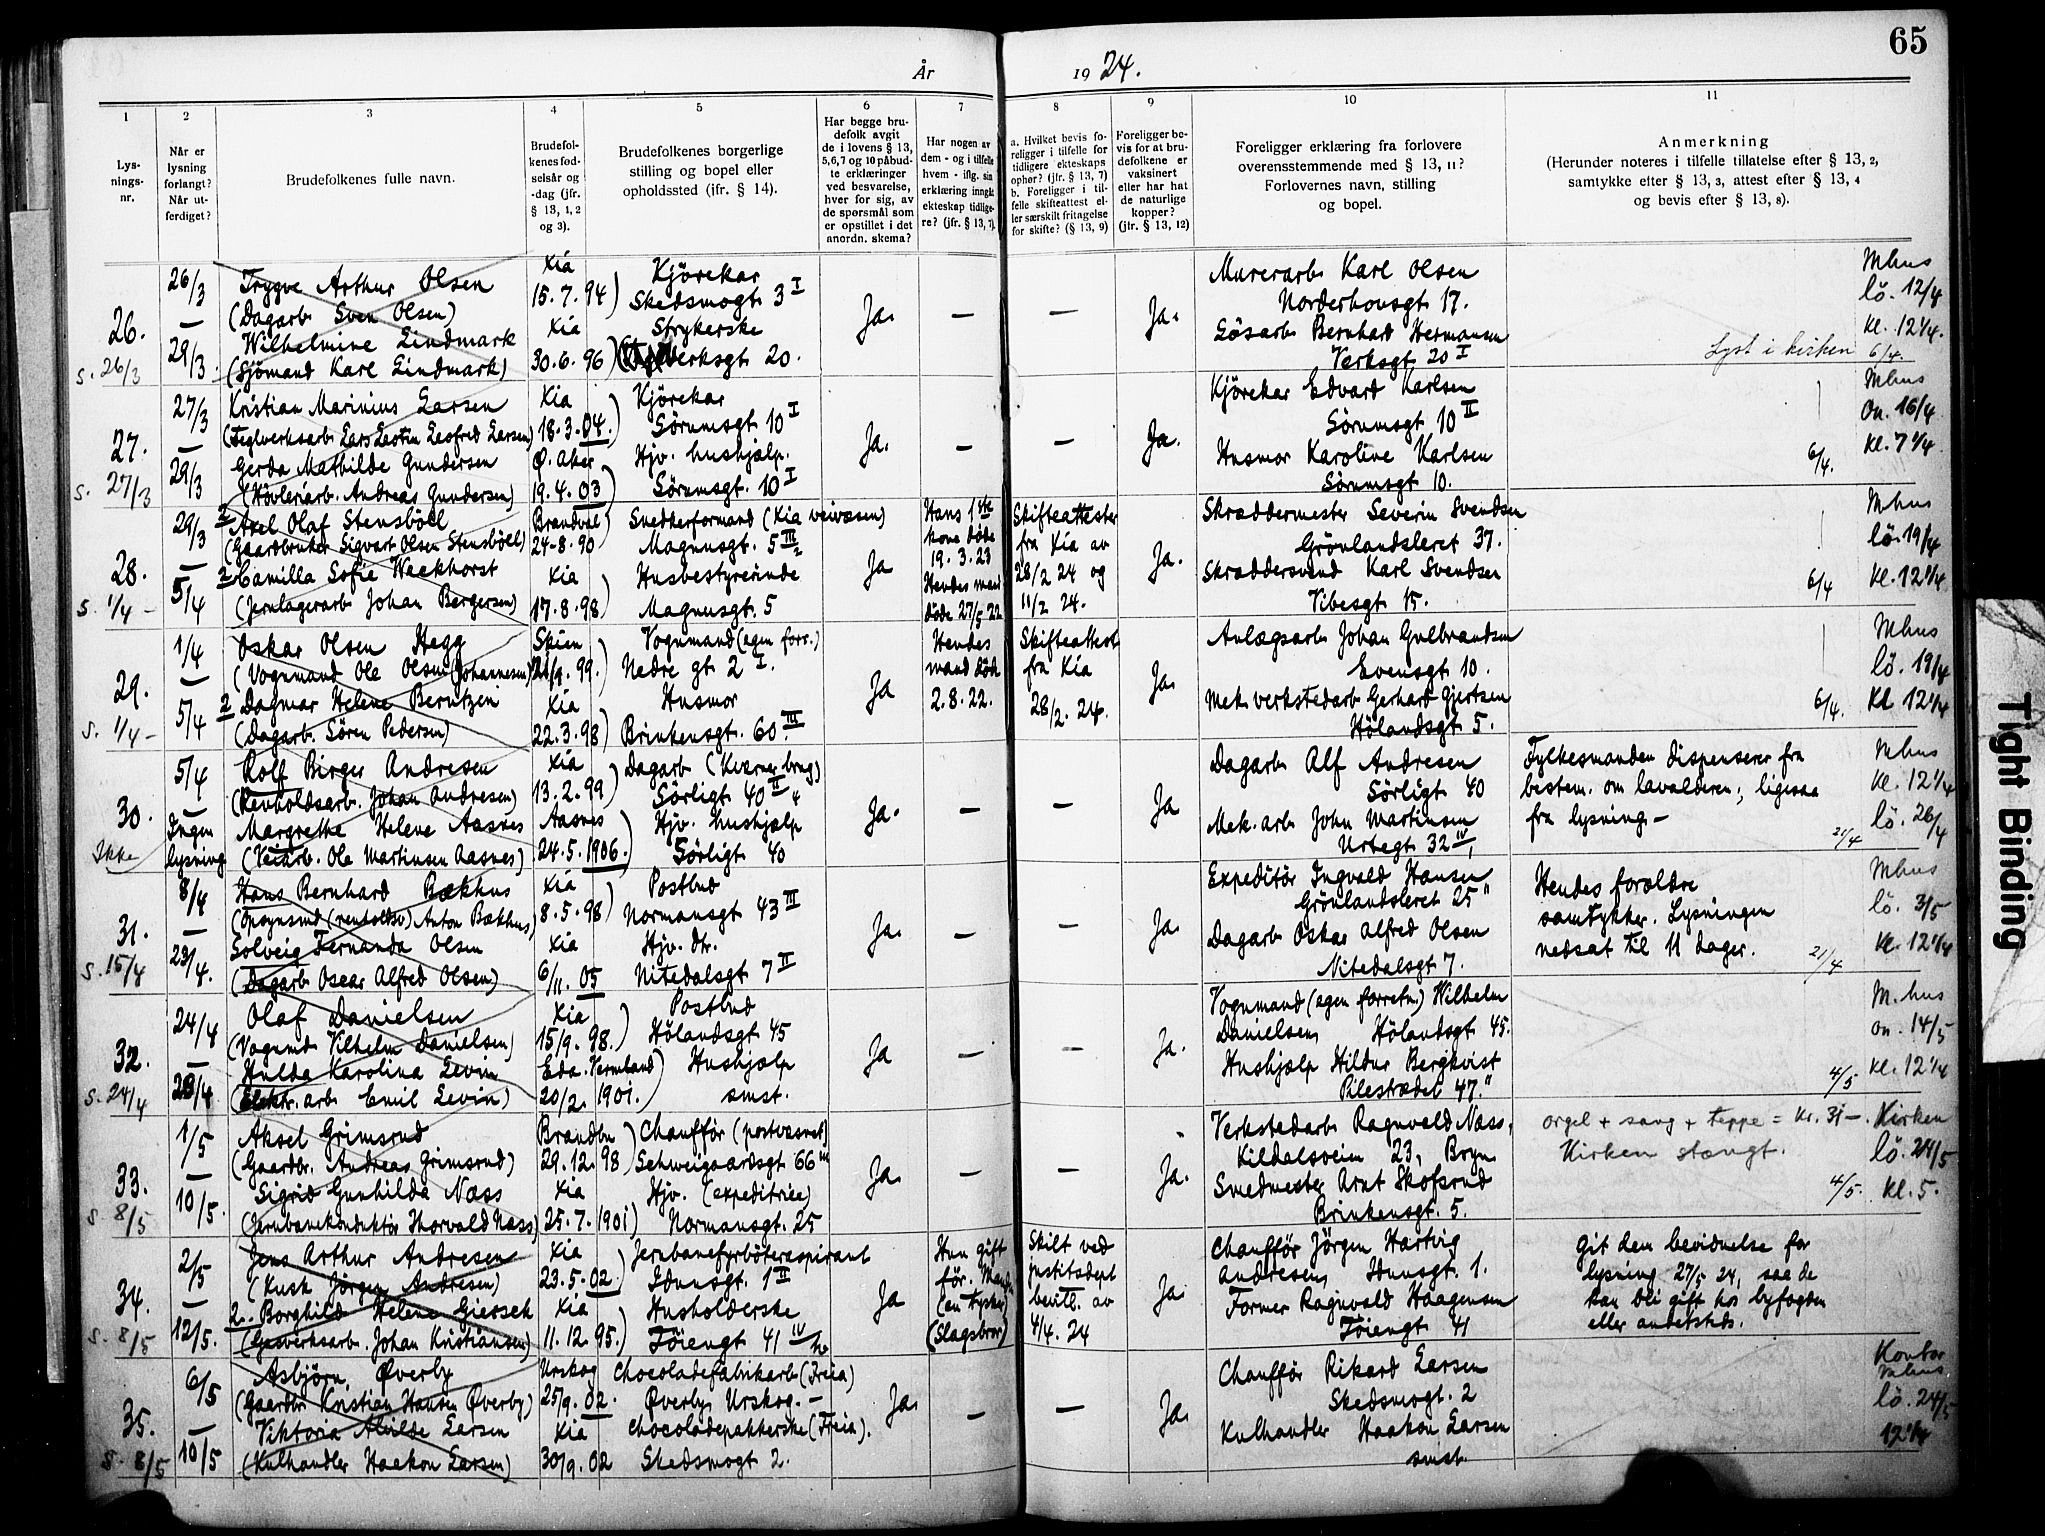 65
År 1924.
1 2 3 4 5 6 7 8 9 10 11
Lys-
nings-
nr.
Når er
lysning
forlangt?
Når ut-
ferdiget?
Brudefolkenes fulle navn.
Brudefol-
kenes fød-
selsår og
-dag (jfr.
§ 13, 1, 2
og 3).
Brudefolkenes borgerlige
stilling og bopel eller
opholdssted (jfr. § 14).
Har begge bru-
defolk avgit
de i lovens § 13,
5,6,7 og 10 påbud-
te erklæringer
ved besvarelse,
hver for sig, av
de spørsmål som
er opstillet i det
anordn. skema?
Har nogen av
dem - og i tilfelle
hvem - iflg. sin
erklæring inngått
ekteskap tidlige-
re? (jfr. § 13, 7).
a. Hvilket bevis fo-
religger i tilfelle for
tidligere ekteskaps
ophør? (jfr. § 13, 7)
b. Foreligger i til-
felle skifteattest el-
ler særskilt fritagelse
for skifte? (§ 13, 9)
Foreligger be-
vis for at bru-
defolkene er
vaksinert
eller har hat
de naturlige
kopper?
(jfr. § 13, 12)
Foreligger erklæring fra forlovere
overensstemmende med § 13, 11?
Forlovernes navn, stilling
og bopel.
Anmerkning
(Herunder noteres i tilfelle tillatelse efter § 13, 2,
samtykke efter § 13, 3, attest efter § 13, 4
og bevis efter § 13, 8).
26.
s. 26/3
26/3
—
29/3
Trygve Arthur Olsen
(Dagarb. Sven Olsen)
Wilhelmine Lindmark
(Sjömand Karl Lindmark)
Kia
15.7.94)
Kia
30.6.96)
Kjörekar
Skedsmogt. 3 I
Strykerske
Verksgt 20.
Ja. — — Ja.
Murerarb. Karl Olsen
Norderhovsgt 17.
Lösarb. Bernhard Hermansen
Verksgt 20 I
Lyst i kirken 6/4.
Mhus
lö. 12/4
Kl. 12 1/4.
27.
s. 27/3
27/3
—
29/3
Kristian Marinius Larsen
(Teglverksarb. Lars Leofred Larsen)
Gerda Mathilde Gundersen
(Hövleriarb. Andreas Gundersen)
Kia
18.3.04.)
Ø. Aker
19.4.03)
Kjörekar
Sörumsgt 10 I
Hjv. hushjælp.
Sörumsgt. 10 I
Ja. — — Ja.
Kjörekar Edvard Karlsen
Sörumsgt 10 II
Husmor Karoline Karlsen
Sörumsgt 10.
6/4.
Mhus
On. 16/4
Kl. 7 1/4
28.
s. 1/4 –
29/3
—
5/4
2 Axel Olaf Stensböll
(Gaardbruker Sigvart Olsen Stensböll)
2 Camilla Sofie Wackhorst
(Jernlagerarb. Johan Bergersen)
Brandval
24-8.90
Kia
17.8.98)
Snedkerformand (Kia veivæsen)
Magnusgt. 5 III
Husbestyrerinde
Magnusgt. 5
Ja
Hans 1ste
kone döde
19.3.23
Hendes mand
döde 27/5 22
Skifteattester
fra Kia av
28/2 24 og
11/2 24.
Ja.
Skræddermester Severin Svendsen
Grönlandsleret 37.
Skræddersvend Karl Svendsen
Vibesgt 15.
6/4
Mhus
lö. 19/4
Kl. 12 1/4
29.
s. 1/4 –
1/4
—
5/4
Oskar Olsen Hegg
(Vognmand Ole Olsen (Johannesen)
2 Dagmar Helene Berntzen
(Dagarb. Sören Pedersen)
Skien
99.)
Kia
22.3.98)
Vognmand (egen forr.)
Nedre gt 2 I.
Husmor
Brinkensgt. 60 III
Ja
Hendes
mand döde
2.8.22.
Skifteattest
fra Kia
28/2. 24.
Ja.
Anlægsarb. Johan Gulbrandsen
Evensgt 10.
Mek. verkstedarb. Gerhard Gjertsen
Hölandsgt 5.
6/4.
Mhus
lö. 19/4
Kl 12 1/4
30.
Ikke
5/4
—
Ingen
lysning
Rolf Birger Andresen
(Renholdsarb. Johan Andresen)
Margrethe Helene Aasnes
(Veiarb. Ole Martinsen Aasnes)
Kia
13.2.99)
Aasnes
24.5.1906.)
Dagarb. (Kværner brug)
Sörligt 40 II
Hjv. hushjælp
Sörligt 40
Ja. — — Ja
Dagarb. Alf Andresen
Sörligt 40
Mek. arb. John Martinsen
Urtegt 32 IV
Fylkesmanden dispenserer fra
bestem. om lavalderen; ligesaa
fra lysning. –
21/4
Mhus
Kl. 12 1/4
lö. 26/4
31.
s. 15/4
8/4
—
23/4.
Hans Bernhard Bækhus
(Opsynsmd (renholdsv) Anton Bækhus)
Solveig Fernanda Olsen
(Dagarb. Oscar Alfred Olsen)
Kia
8.5.98)
Kia
6/11. 05
Postbud
Normansgt 43 III
Hjv. dtr.
Nitedalsgt 7 II
Ja. — — Ja.
Expeditör Ingvald Hansen
Grönlandsleret 25"
Dagarb. Oskar Alfred Olsen
Nitedalsgt 7.
Hendes forældre
samtykker. Lysningen
nedsat til 11 dager.
21/4
Mhus
lö. 3/5
Kl. 12 1/4
32.
s. 24/4
24/4
—
28/4
Olaf Danielsen
(Vognmd. Vilhelm Danielsen)
Hulda Karolina Levin
(Elektr. arb. Emil Levin)
Kia
15/9. 98.)
Eda. Vermland)
20/2. 1901.)
Postbud
Hölandsgt 45
Hushjælp
smst.
Ja — — Ja.
Vognmand (egen forretn.) Wilhelm
Danielsen, Hölandsgt 45.
Hushjælp Hildur Bergkvist
Pilestrædet 47."
4/5
M.hus
on. 14/5
Kl. 12 1/4
33.
s 8/5
1/5
—
10/5.
Aksel Grimsrud
(Gaardbr. Andreas Grimsrud)
Sigrid Gunhilda Næss
(Jernbanekonduktör Thorvald Næss)
Brandbu
29.12.98
Kia
25.7.1901)
Chaufför (postvæsnet)
Schweigaardsgt 66 III
Hjv. (expeditrice)
Normansgt. 25
Ja. — — Ja.
Verkstedarb. Ragnvald Næss.
Kildalsveien 23, Bryn
Smedmester Arnt Skofsrud
Brinkensgt. 5.
orgel + sang + teppe = Kr. 31 –.
Kirken stængt.
4/5.
Kirken
lö. 24/5
Kl. 5.
34.
s. 8/5
2/5
—
12/5.
Jens Arthur Andresen
(Kusk Jörgen Andresen)
2. Borghild Helene Giersek
(Gasverksarb. Johan Kristiansen)
Kia
23.5.02.)
Kia
11.12.95.)
Jernbanefyrböteraspirant
Idunsgt. 1 II
Husholderske
Töiengt 41 IV
Ja
Hun gift
för. Manden
(en tysker)
(Slagsbror)
Skilt ved
justitsdept
bevill. av
4/4. 24
Ja.
Chaufför Jörgen Hartvig
Andresen, Idunsgt. 1.
Former Ragnvald Haagensen
Töiengt 41
Git dem bevidnelse for
lysning 27/5 24, saa de
kan bli gift hos byfogden
eller andetsteds.
35.
s. 8/5
6/5
—
10/5
Asbjörn Øverby
(Gaardbr. Kristian Hansen Øverby)
Viktoria Alvilde Larsen
(Kulhandler Haakon Larsen)
Urskog
25/9. 02.
Kia
30/9. 02
Chocoladefabrikarb. (Freia)
Øverby, Urskog. –
Chocoladepakkerske (Freia).
Skedsmogt 2.
Ja. — — Ja.
Chaufför Rikard Larsen
Skedsmogt. 2
Kulhandler Haakon Larsen
smst.
Kontor
Mhus
lö. 24/5
12 1/4
Tight Binding